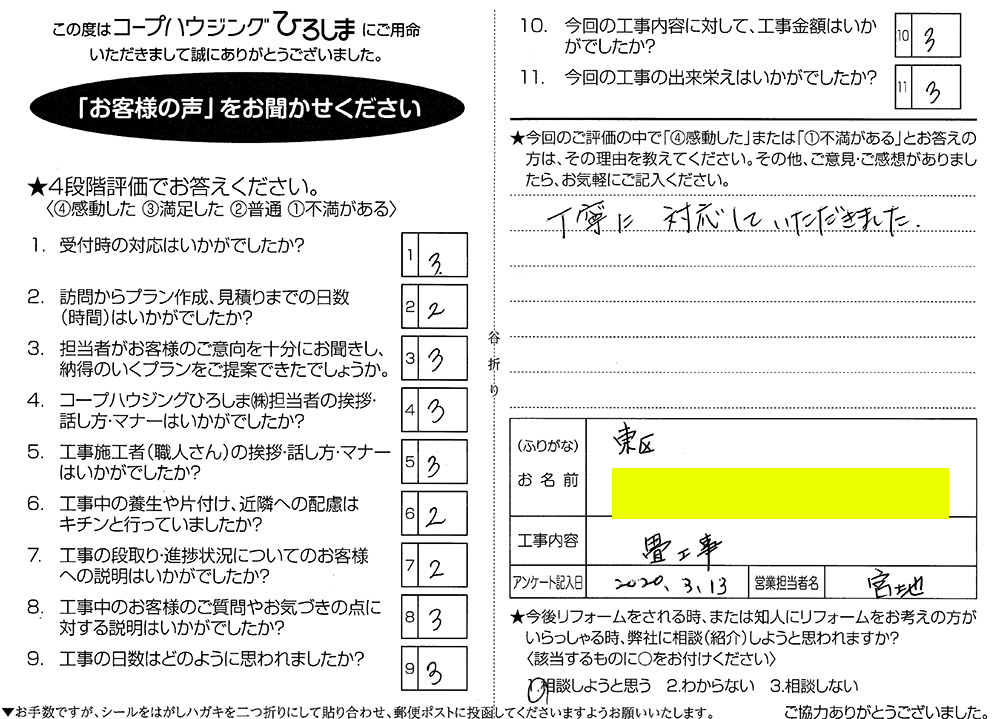 この度はコープハウジングひろしまにご用命
いただきまして誠にありがとうございました。
「お客様の声」をお聞かせください
★4段階評価でお答えください。
〈④感動した ③満足した ②普通 ①不満がある〉
1. 受付時の対応はいかがでしたか?
1 3
2. 訪問からプラン作成、見積りまでの日数
(時間)はいかがでしたか?
2 2
3. 担当者がお客様のご意向を十分にお聞きし、
納得のいくプランをご提案できたでしょうか。
3 3
4. コープハウジングひろしま㈱担当者の挨拶・
話し方・マナーはいかがでしたか?
4 3
5. 工事施工者(職人さん)の挨拶・話し方・マナー
はいかがでしたか?
5 3
6. 工事中の養生や片付け、近隣への配慮は
キチンと行っていましたか?
6 2
7. 工事の段取り・進捗状況についてのお客様
への説明はいかがでしたか?
7 2
8. 工事中のお客様のご質問やお気づきの点に
対する説明はいかがでしたか?
8 3
9. 工事の日数はどのように思われましたか?
9 3
谷折り
10. 今回の工事内容に対して、工事金額はいか
がでしたか?
10 3
11. 今回の工事の出来栄えはいかがでしたか?
11 3
★今回のご評価の中で「④感動した」または「①不満がある」とお答えの
方は、その理由を教えてください。その他、ご意見・ご感想がありまし
たら、お気軽にご記入ください。
丁寧に 対応して いただきました.
(ふりがな)
お名前
東区
工事内容 畳工事
アンケート記入日 2020.3.13 営業担当者名 宮地
★今後リフォームをされる時、または知人にリフォームをお考えの方が
いらっしゃる時、弊社に相談(紹介)しようと思われますか?
〈該当するものに○をお付けください〉
1.相談しようと思う 2.わからない 3.相談しない
▼お手数ですが、シールをはがしハガキを二つ折りにして貼り合わせ、郵便ポストに投函してくださいますようお願いいたします。
ご協力ありがとうございました。